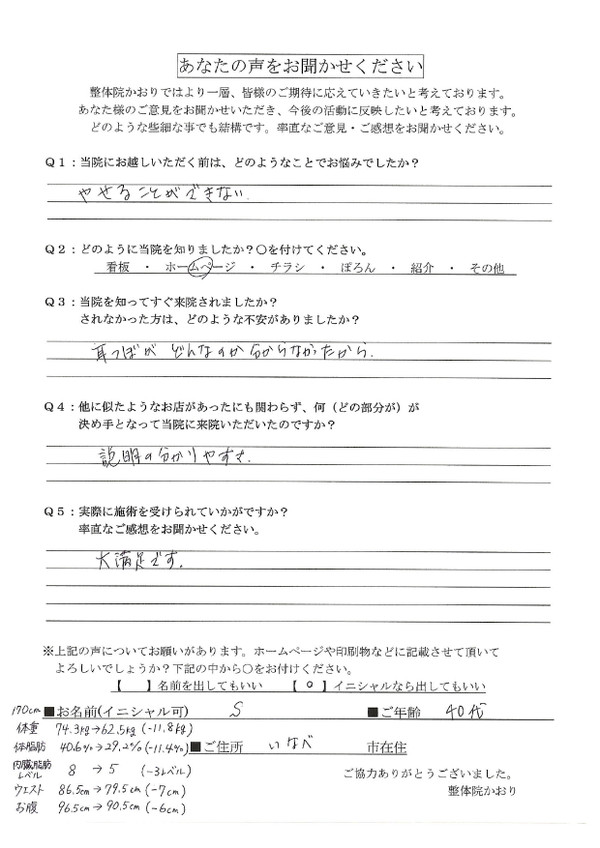 あなたの声をお聞かせください
整体院かおりではより一層、皆様のご期待に応えていきたいと考えております。
あなた様のご意見をお聞かせいただき、今後の活動に反映したいと考えております。
どのような些細な事でも結構です。率直なご意見・ご感想をお聞かせください。
Q1：当院にお越しいただく前は、どのようなことでお悩みでしたか？
やせることができない.
Q2：どのように当院を知りましたか？〇を付けてください。
看板 ・ ホームページ ・ チラシ ・ ぽろん ・ 紹介 ・ その他
Q3：当院を知ってすぐ来院されましたか？
されなかった方は、どのような不安がありましたか？
耳つぼが どんなのか分からなかったから.
Q4：他に似たようなお店があったにも関わらず、何（どの部分が）が
決め手となって当院に来院いただいたのですか？
説明の分かりやすさ.
Q5：実際に施術を受けられていかがですか？
率直なご感想をお聞かせください。
大満足です.
※上記の声についてお願いがあります。ホームページや印刷物などに記載させて頂いて
よろしいでしょうか？下記の中から〇をお付けください。
【　】名前を出してもいい 【 o 】イニシャルなら出してもいい
170cm ■お名前(イニシャル可) S ■ご年齢 40代
体重 74.3kg→62.5kg (-11.8kg)
体脂肪 40.6%→29.2% (-11.4%) ■ご住所 いなべ 市在住
内臓脂肪レベル 8 → 5 (-3レベル)
ご協力ありがとうございました。
ウエスト 86.5cm→79.5cm (-7cm)
整体院かおり
お腹 96.5cm→90.5cm (-6cm)